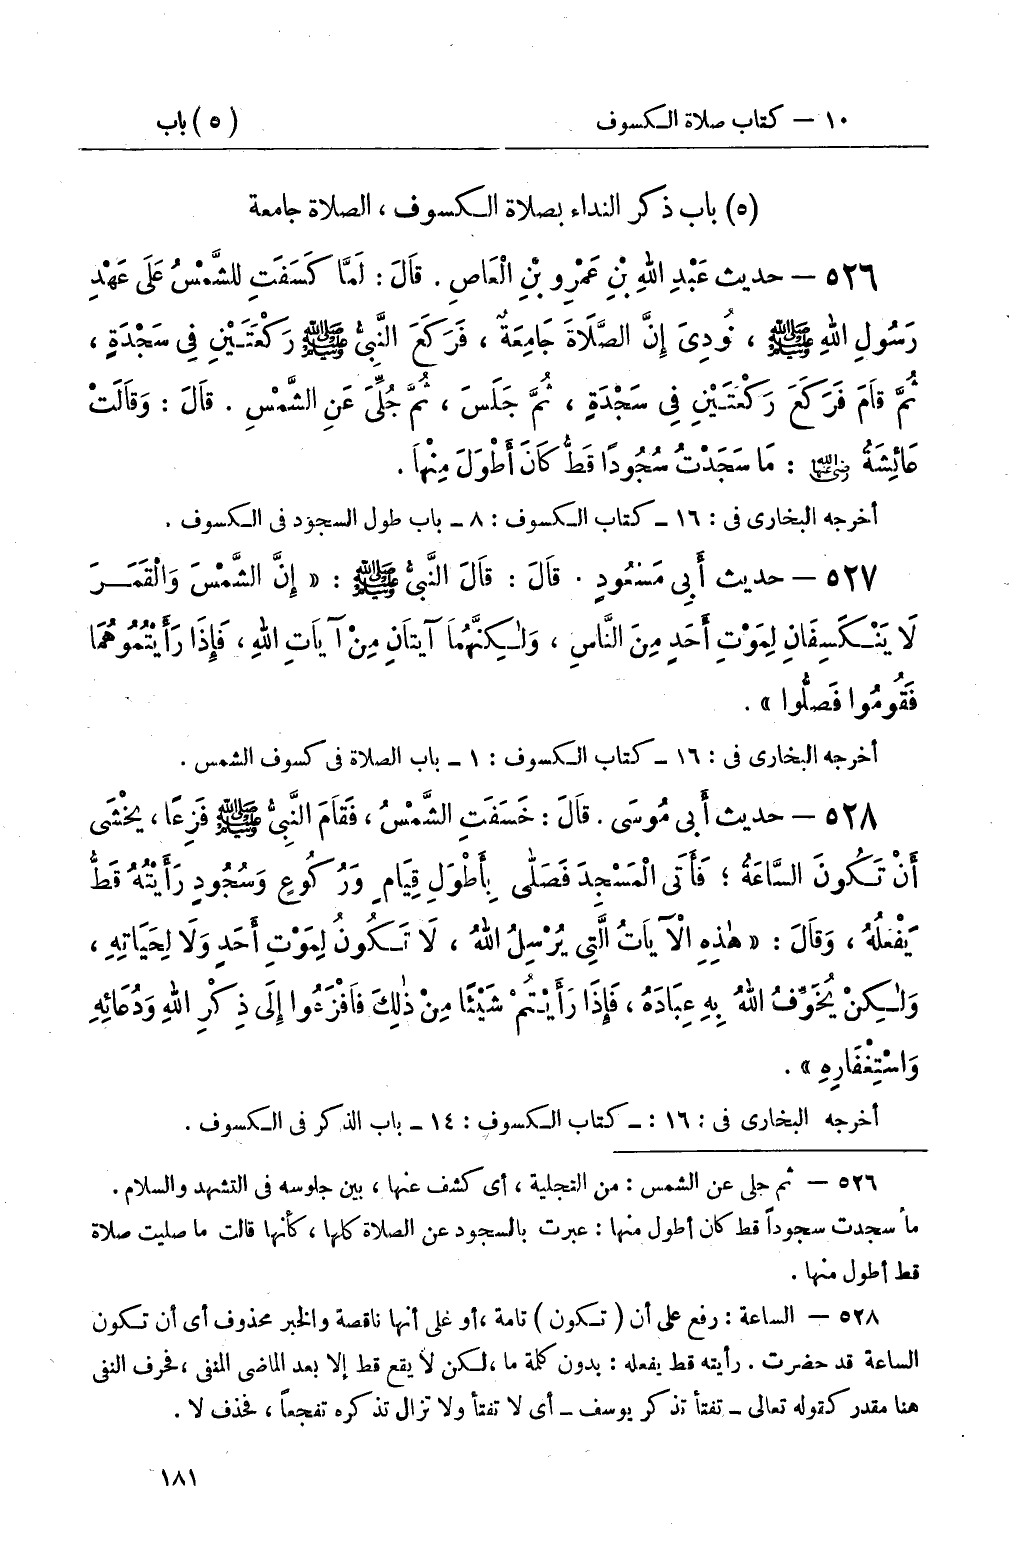 ١٠ – كتاب صلاة الكسوف (٥) باب
(٥) باب ذكر النداء بصلاة الكسوف ، الصلاة جامعة
٥٢٦ – حديث عَبْدِ اللهِ بْنِ عَمْرِو بْنِ الْعَاصِ . قَالَ : لَمَّا كَسَفَتِ الشَّمْسُ عَلَى عَهْدِ
رَسُولِ اللهِ ﷺ ، نُودِىَ إِنَّ الصَّلَاةَ جَامِعَةٌ ، فَرَكَعَ النَّبِىُّ ﷺ رَكْعَتَيْنِ فِى سَجْدَةٍ ،
ثُمَّ قَامَ فَرَكَعَ رَكْعَتَيْنِ فِى سَجْدَةٍ ، ثُمَّ جَلَسَ ، ثُمَّ جُلِّىَ عَنِ الشَّمْسِ . قَالَ : وَقَالَتْ
عَائِشَةُ رضي الله عنها : مَا سَجَدْتُ سُجُودًا قَطُّ كَانَ أَطْوَلَ مِنْهَا .
أخرجه البخارى فى : ١٦ – كتاب الكسوف : ٨ – باب طول السجود فى الكسوف .
٥٢٧ – حديث أَبِى مَسْعُودٍ . قَالَ : قَالَ النَّبِىُّ ﷺ : « إِنَّ الشَّمْسَ وَالْقَمَرَ
لَا يَنْكَسِفَانِ لِمَوْتِ أَحَدٍ مِنَ النَّاسِ ، وَلٰكِنَّهُمَا آيَتَانِ مِنْ آيَاتِ اللهِ ، فَإِذَا رَأَيْتُمُوهُمَا
فَقُومُوا فَصَلُّوا » .
أخرجه البخارى فى : ١٦ – كتاب الكسوف : ١ – باب الصلاة فى كسوف الشمس .
٥٢٨ – حديث أَبِى مُوسَى . قَالَ : خَسَفَتِ الشَّمْسُ ، فَقَامَ النَّبِىُّ ﷺ فَزِعًا ، يَخْشَى
أَنْ تَكُونَ السَّاعَةُ ؛ فَأَتَى الْمَسْجِدَ فَصَلَّى بِأَطْوَلِ قِيَامٍ وَرُكُوعٍ وَسُجُودٍ رَأَيْتُهُ قَطُّ
يَفْعَلُهُ ، وَقَالَ : « هٰذِهِ الْآيَاتُ الَّتِى يُرْسِلُ اللهُ ، لَا تَكُونُ لِمَوْتِ أَحَدٍ وَلَا لِحَيَاتِهِ ،
وَلٰكِنْ يُخَوِّفُ اللهُ بِهِ عِبَادَهُ ، فَإِذَا رَأَيْتُمْ شَيْئًا مِنْ ذٰلِكَ فَافْزَعُوا إِلَى ذِكْرِ اللهِ وَدُعَائِهِ
وَاسْتِغْفَارِهِ » .
أخرجه البخارى فى : ١٦ : – كتاب الكسوف : ١٤ – باب الذكر فى الكسوف .
٥٢٦ – ثم جلى عن الشمس : من التجلية ، أى كشف عنها ، بين جلوسه فى التشهد والسلام .
ما سجدت سجوداً قط كان أطول منها : عبرت بالسجود عن الصلاة كلها ، كأنها قالت ما صليت صلاة
قط أطول منها .
٥٢٨ – الساعة : رفع على أن ( تكون ) تامة ، أو على أنها ناقصة والخبر محذوف أى أن تكون
الساعة قد حضرت . رأيته قط يفعله : بدون كلمة ما ، لكن لا يقع قط إلا بعد الماضى المنفى ، فحرف النفى
هنا مقدر كقوله تعالى – تفتأ تذكر يوسف – أى لا تفتأ ولا تزال تذكره تفجعاً ، فحذف لا .
١٨١